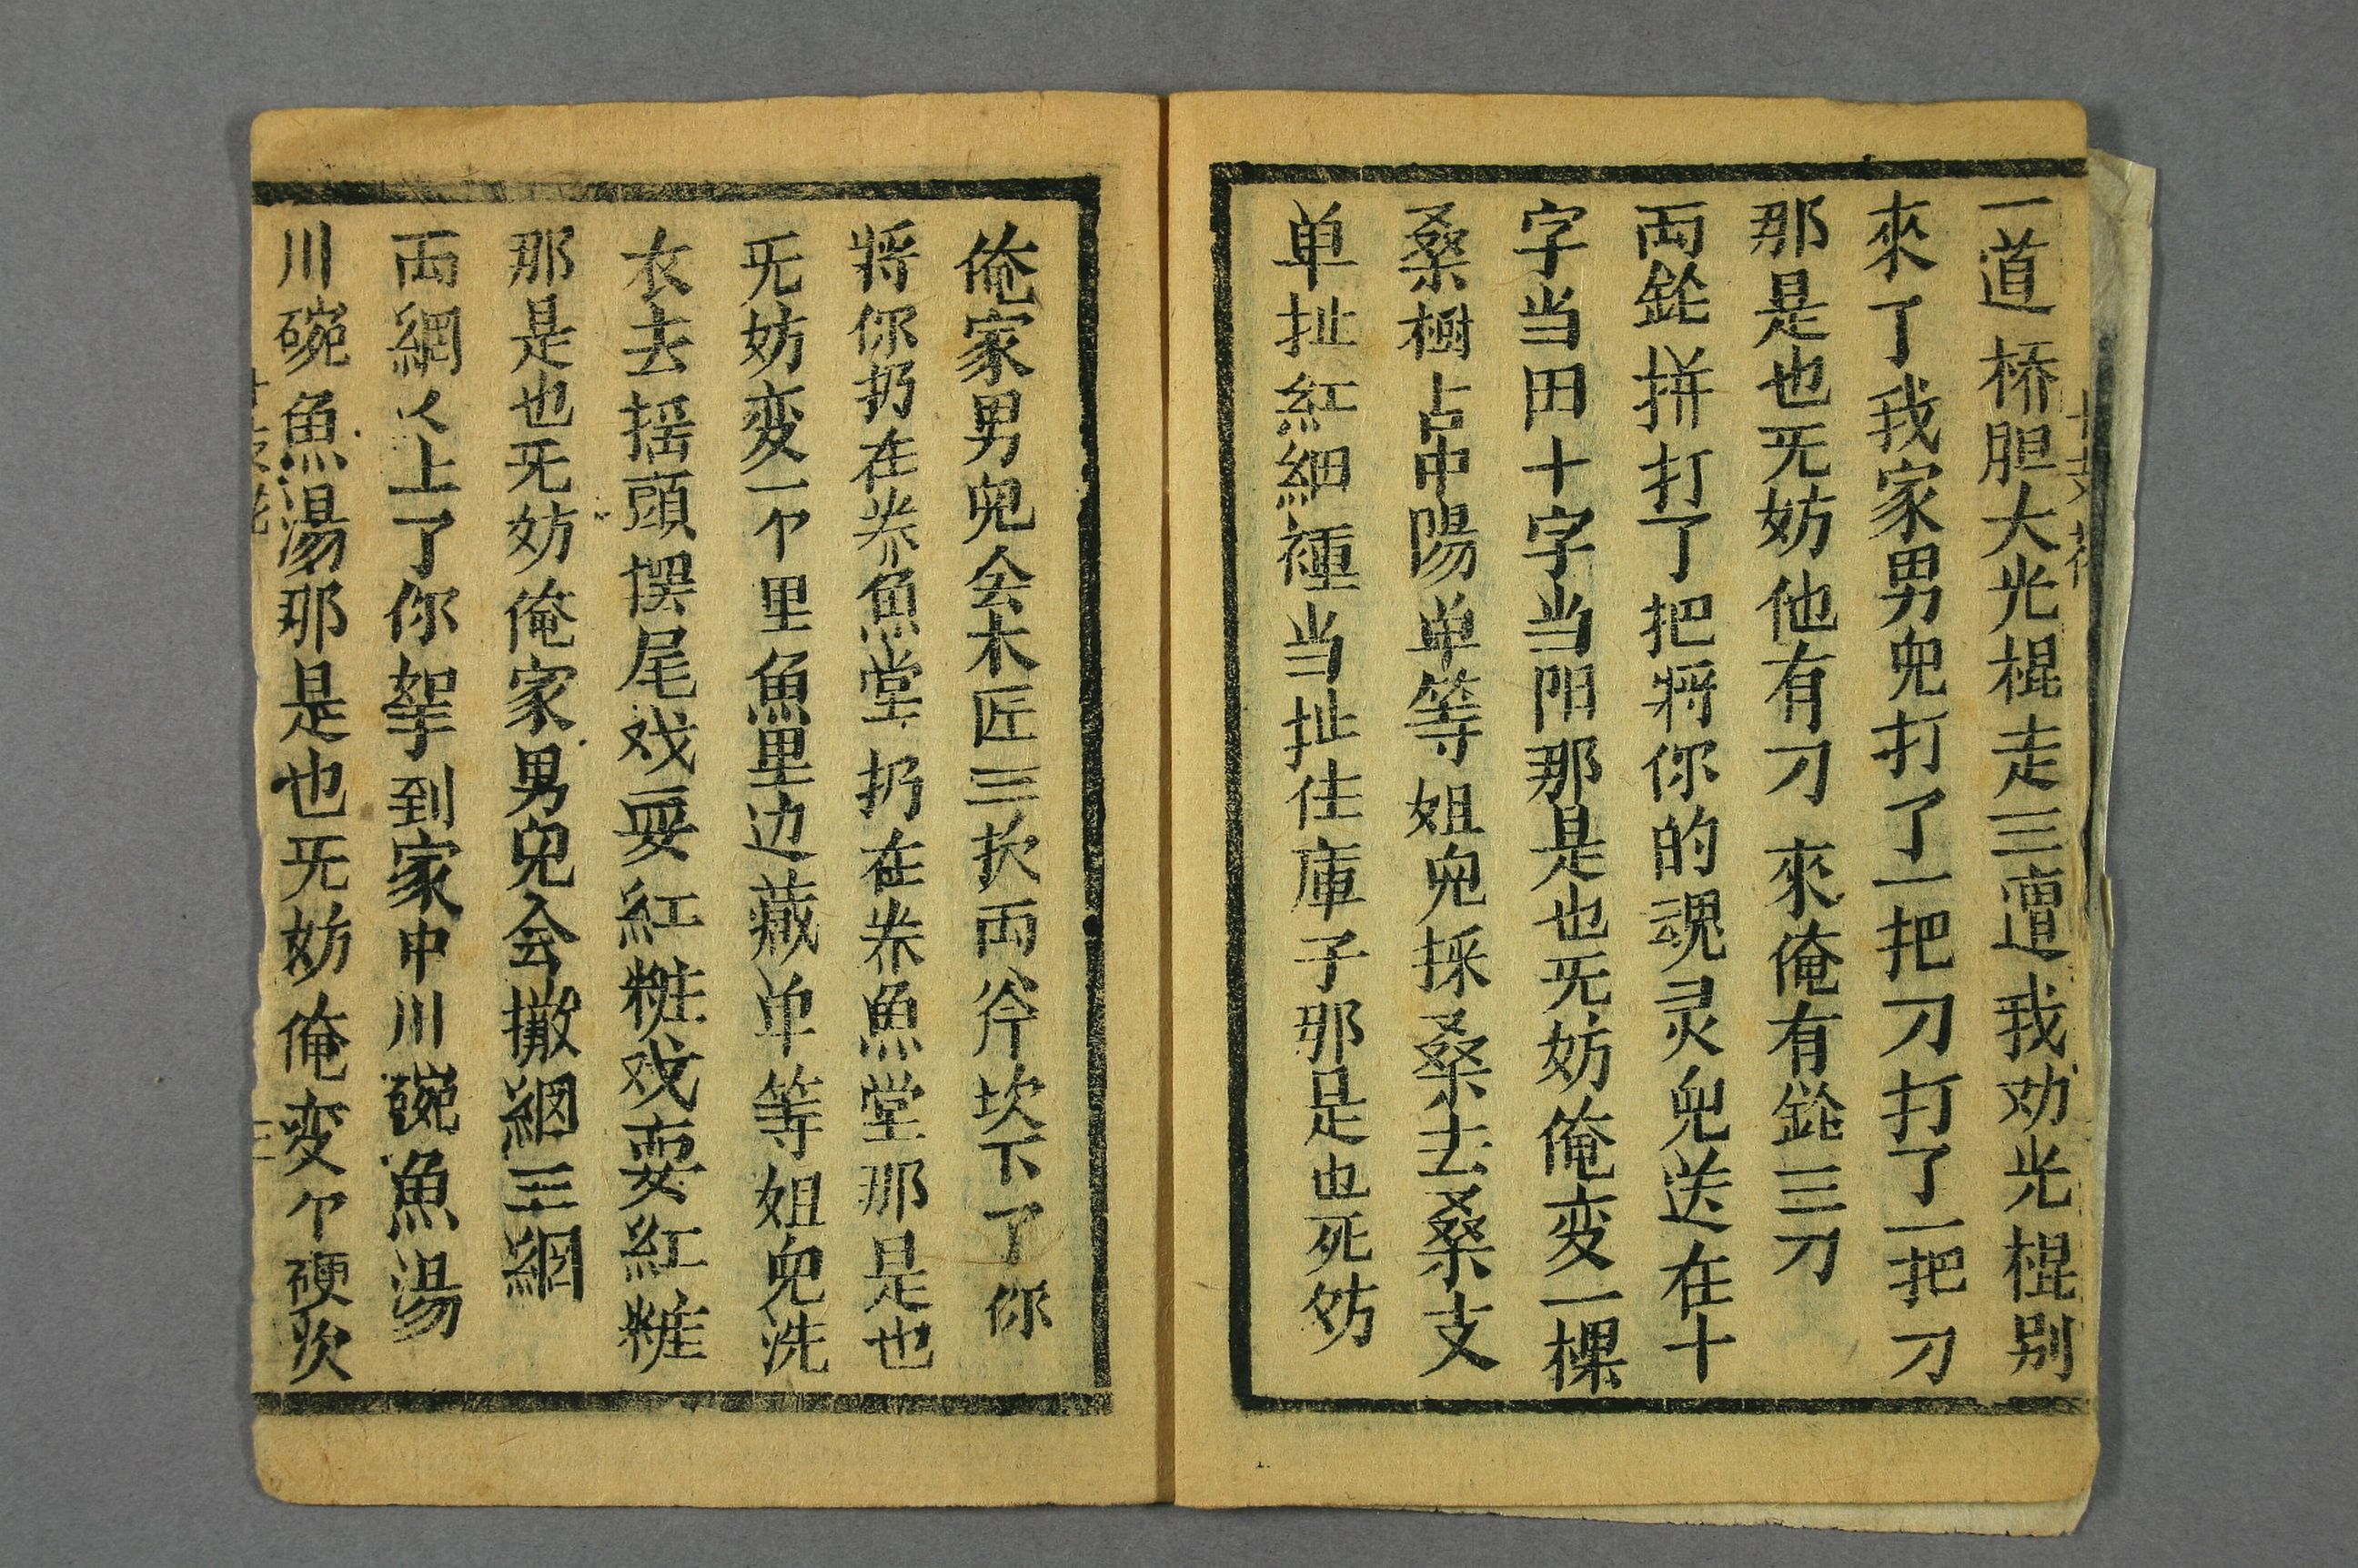 一道桥胆大光棍走三遭我劝光棍别
來了我家男児打了一把刀打了一把刀
那是也旡妨他有刀來俺有鎗三刀
両鎗拼打了把將你的魂灵児送在十
字当田十字当阳那是也旡妨俺变一棵
桑樹占中陽单等姐児採桑去桑支
单扯紅細種当扯住庫子那是也死妨
俺家男児会木匠三抆両斧坎下了你
將你扔在养魚堂扔在养魚堂那是也
旡妨变一个里魚里边藏单等姐児洗
衣去揺頭摆尾戏耍紅粧戏耍紅粧
那是也旡妨俺家男児会撒網三網
両網乂上了你拏到家中川碗魚湯
川碗魚湯那是也旡妨俺变个硬次